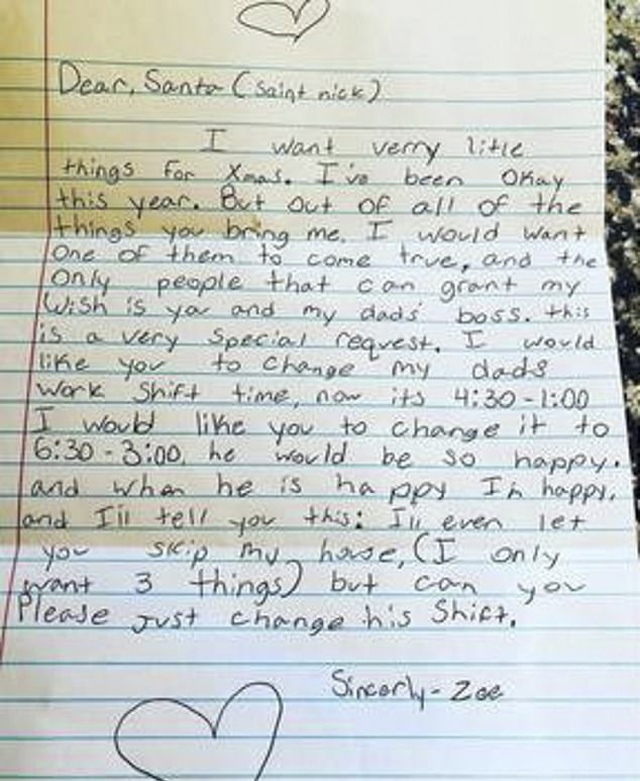 Dear, Santa (Saint nick)
I want verry litle
things for Xmas. I've been Okay
this year. But out of all of the
things you bring me. I would want
one of them to come true, and the
only people that can grant my
wish is you and my dads' boss. this
is a very special request. I would
like you to change my dads
work shift time, now its 4:30-1:00
I would like you to change it to
6:30-3:00. he would be so happy.
and when he is happy Im happy.
and I'll tell you this: I'll even let
you skip my house, (I only
want 3 things) but can you
Please just change his Shift.
Sincerly- Zoe